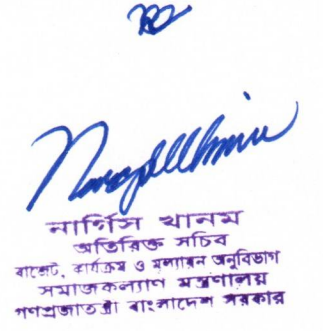 নার্গিস খানম
অতিরিক্ত সচিব
বাজেট, কার্যক্রম ও মূল্যায়ন অনুবিভাগ
সমাজকল্যাণ মন্ত্রণালয়
গণপ্রজাতন্ত্রী বাংলাদেশ সরকার